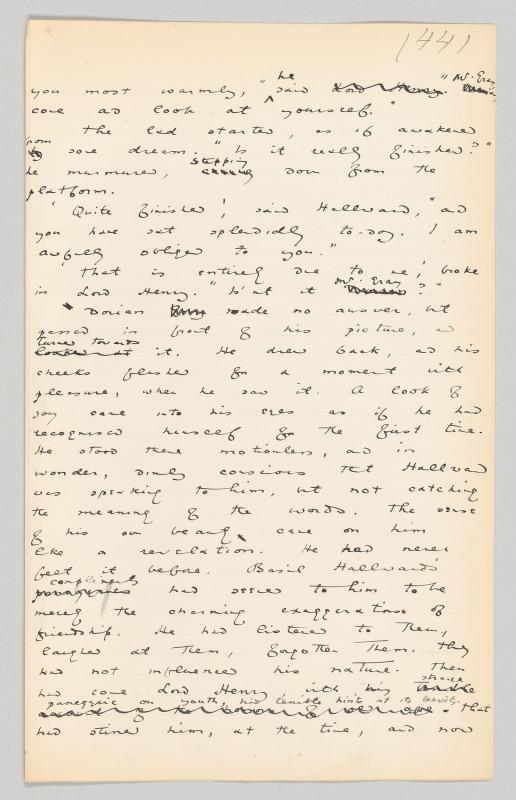 (44)
you most warmly," he said Lord Henry. "Mr. Gray
come and look at yourself."
The lad started, as if awakened
from some dream. "Is it really finished?"
he murmured, stepping down from the
platform.
'Quite finished', said Hallward, "and
you have sat splendidly to-day. I am
awfully obliged to you."
'That is entirely due to me', broke
in Lord Henry. "Isn't it Mr. Gray?"
Dorian made no answer, but
passed in front of his picture, and
turned towards looked at it. He drew back, and his
cheeks flushed for a moment with
pleasure, when he saw it. A look of
joy came into his eyes as if he had
recognised himself for the first time.
He stood there motionless, and in
wonder, dimly conscious that Hallward
was speaking to him, but not catching
the meaning of the words. The sense
of his own beauty came on him
like a revelation. He had never
felt it before. Basil Hallward's
compliments had seemed to him to be
merely the charming exaggerations of
friendship. He had listened to them,
laughed at them, forgotten them. They
had not influenced his nature. Then
had come Lord Henry with his strange
panegyric on youth, his terrible hints at its brevity. That
had stirred him, at the time, and now